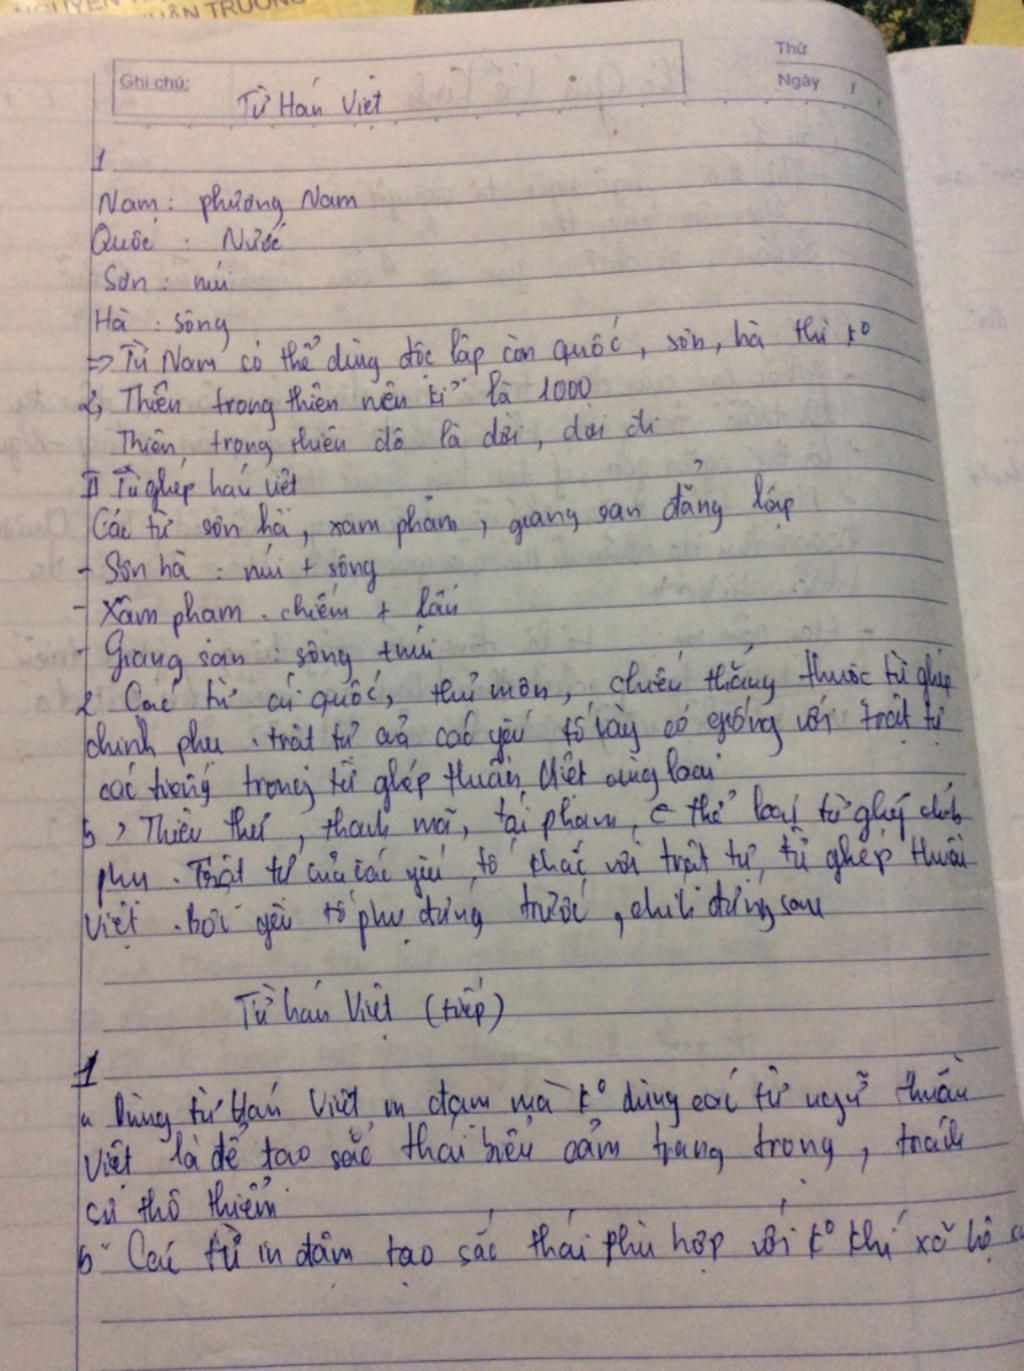 NGUYỄN
XUÂN TRƯỜNG
Thứ
Ghi chú:
Ngày / /
Từ Hán Việt
1
Nam: phương Nam
Quốc : Nước
Sơn : núi
Hà : sông
=> Từ Nam có thể dùng độc lập còn quốc, sơn, hà thì k°
2, Thiên trong thiên niên kỉ là 1000
Thiên trong thiên đô là dời, dời đi
II Từ ghép hán việt
Các từ sơn hà, xâm phạm, giang san đẳng lập
- Sơn hà : núi + sông
- Xâm phạm . chiếm + lấn
- Giang san : sông + núi
2 Các từ ái quốc, thủ môn, chiến thắng thuộc từ ghép
chính phụ . trật tự của các yếu tố này có giống với trật tự
các tiếng trong từ ghép thuần Việt cùng loại
b, Thiên thư, thạch mã, tái phạm, thể loại từ ghép chính
phụ . Trật tự của các yếu tố khác với trật tự từ ghép thuần
Việt . Bởi yếu tố phụ đứng trước, chính đứng sau
Từ hán Việt (tiếp)
1
a Dùng từ Hán Việt in đạm mà k° dùng các từ ngữ thuần
Việt là để tạo sắc thái biểu cảm trang trọng, tránh
cử thô thiển
b Các từ in đậm tạo sắc thái phù hợp với k° khí xã hộ